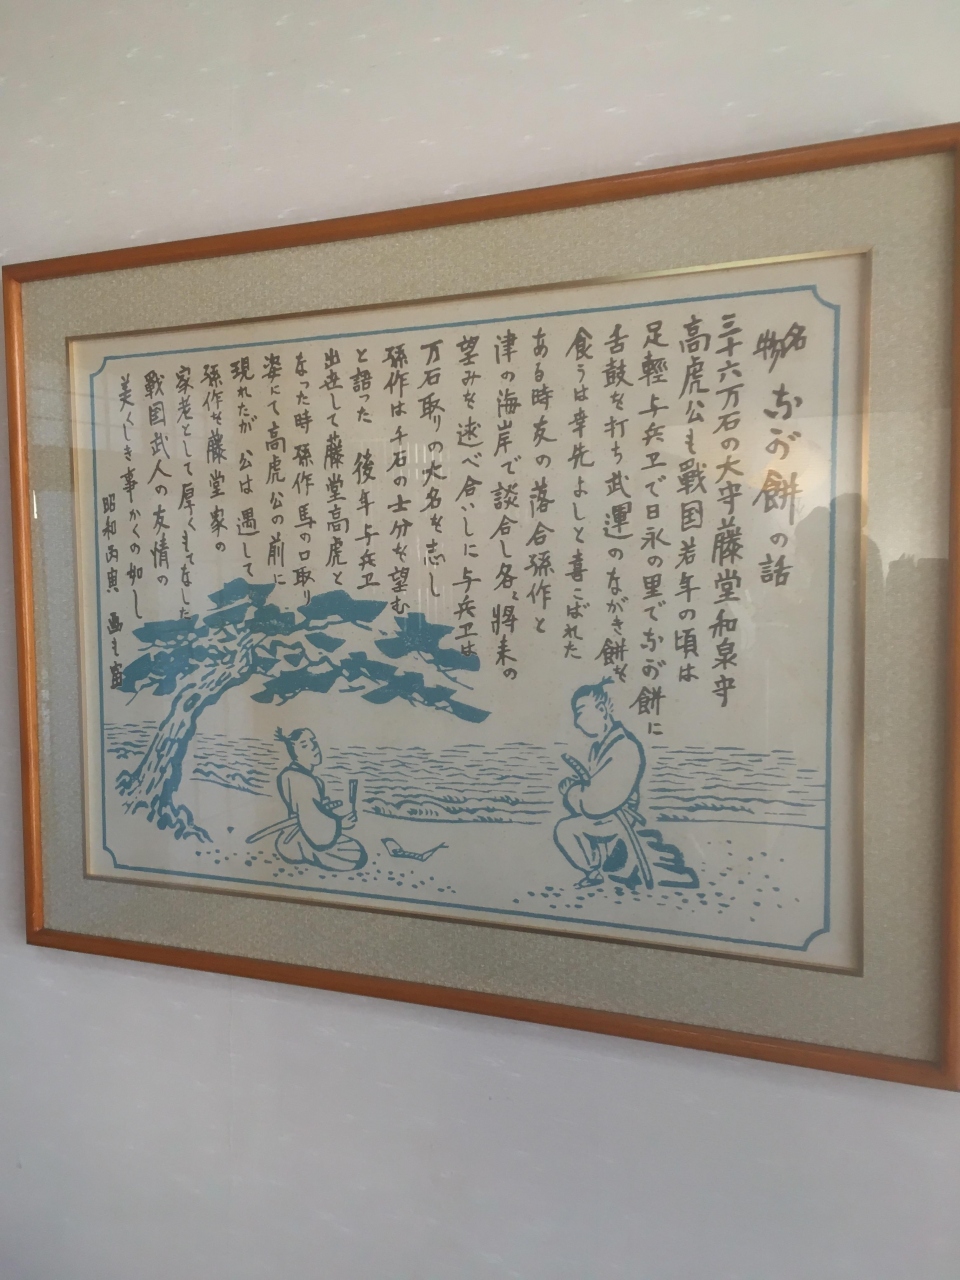 名物 なが餅の話
三十六万石の大守藤堂和泉守
高虎公も戦国若年の頃は
足軽与兵ヱで日永の里でなが餅に
舌鼓を打ち武運のながき餅を
食うは幸先よしと喜こばれた
ある時友の落合孫作と
津の海岸で談合し各〻将来の
望みを述べ合いしに与兵ヱは
万石取りの大名を志し
孫作は千石の士分を望む
と語った 後年与兵ヱ
出世して藤堂高虎と
なった時孫作馬の口取り
姿にて高虎公の前に
現れたが 公は遇して
孫作を藤堂家の
家老として厚くもてなした
戦国武人の友情の
美くしき事かくの如し
昭和丙寅